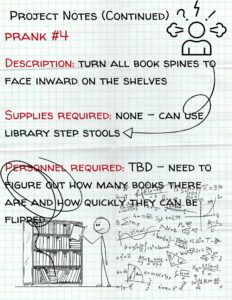 Project Notes (Continued)
PRANK #4
Description: turn all book spines to
face inward on the shelves
Supplies required: none – can use
library step stools
Personnel required: TBD – need to
figure out how many books there
are and how quickly they can be
flipped